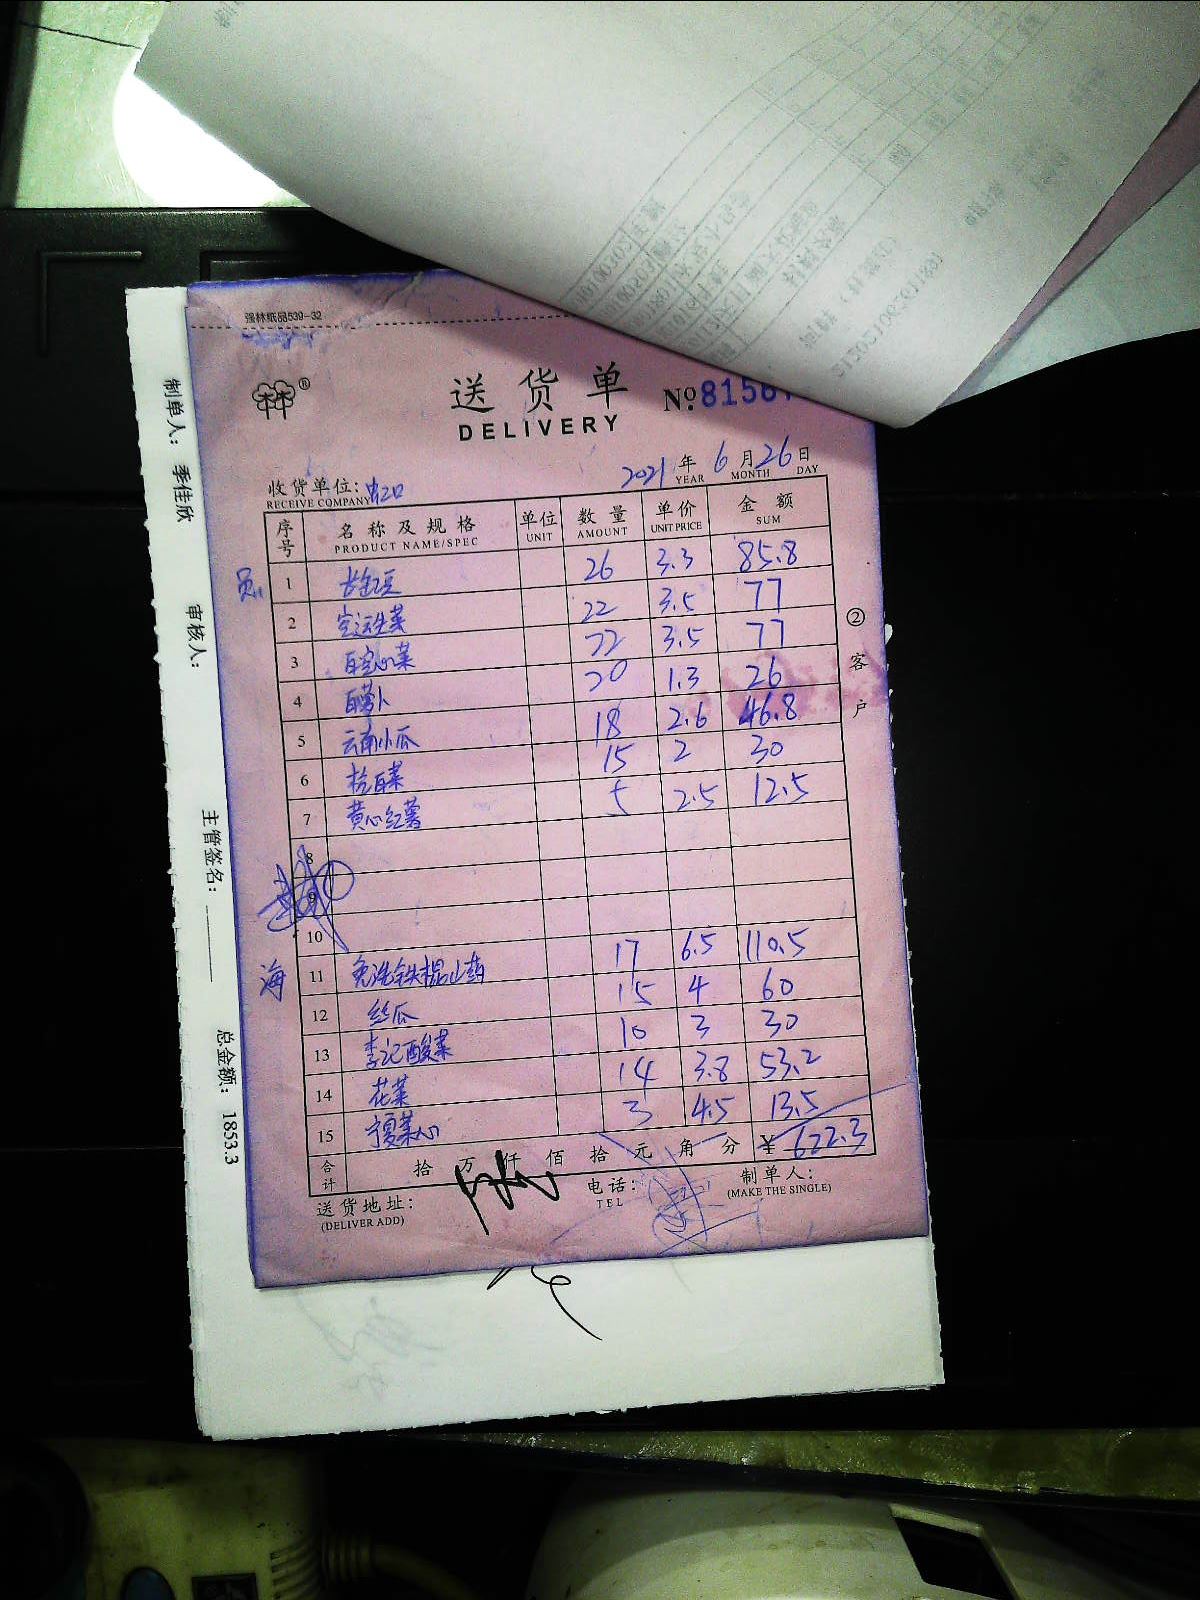 强林纸品539-32
林®
送货单 №8156
DELIVERY
2021年 6月26日
YEAR MONTH DAY
收货单位:虹口
RECEIVE COMPANY
序号 名称及规格 单位 数量 单价 金额
PRODUCT NAME/SPEC UNIT AMOUNT UNIT PRICE SUM
1 长豇豆 26 3.3 85.8
2 空运生菜 22 3.5 77
3 白空心菜 22 3.5 77
4 白萝卜 20 1.3 26
5 云南小瓜 18 2.6 46.8
6 杭白菜 15 2 30
7 黄心红薯 5 2.5 12.5
8
9
10
海
11 免洗铁棍山药 17 6.5 110.5
12 丝瓜 15 4 60
13 李记酸菜 10 3 30
14 花菜 14 3.8 53.2
15 宁夏菜心 3 4.5 13.5
合计 拾 万 仟 佰 拾 元 角 分 ¥ 622.3
送货地址: 电话: 制单人:
(DELIVER ADD) TEL (MAKE THE SINGLE)
②客户
制单人: 季佳欣 审核人: 主管签名: 总金额: 1853.3